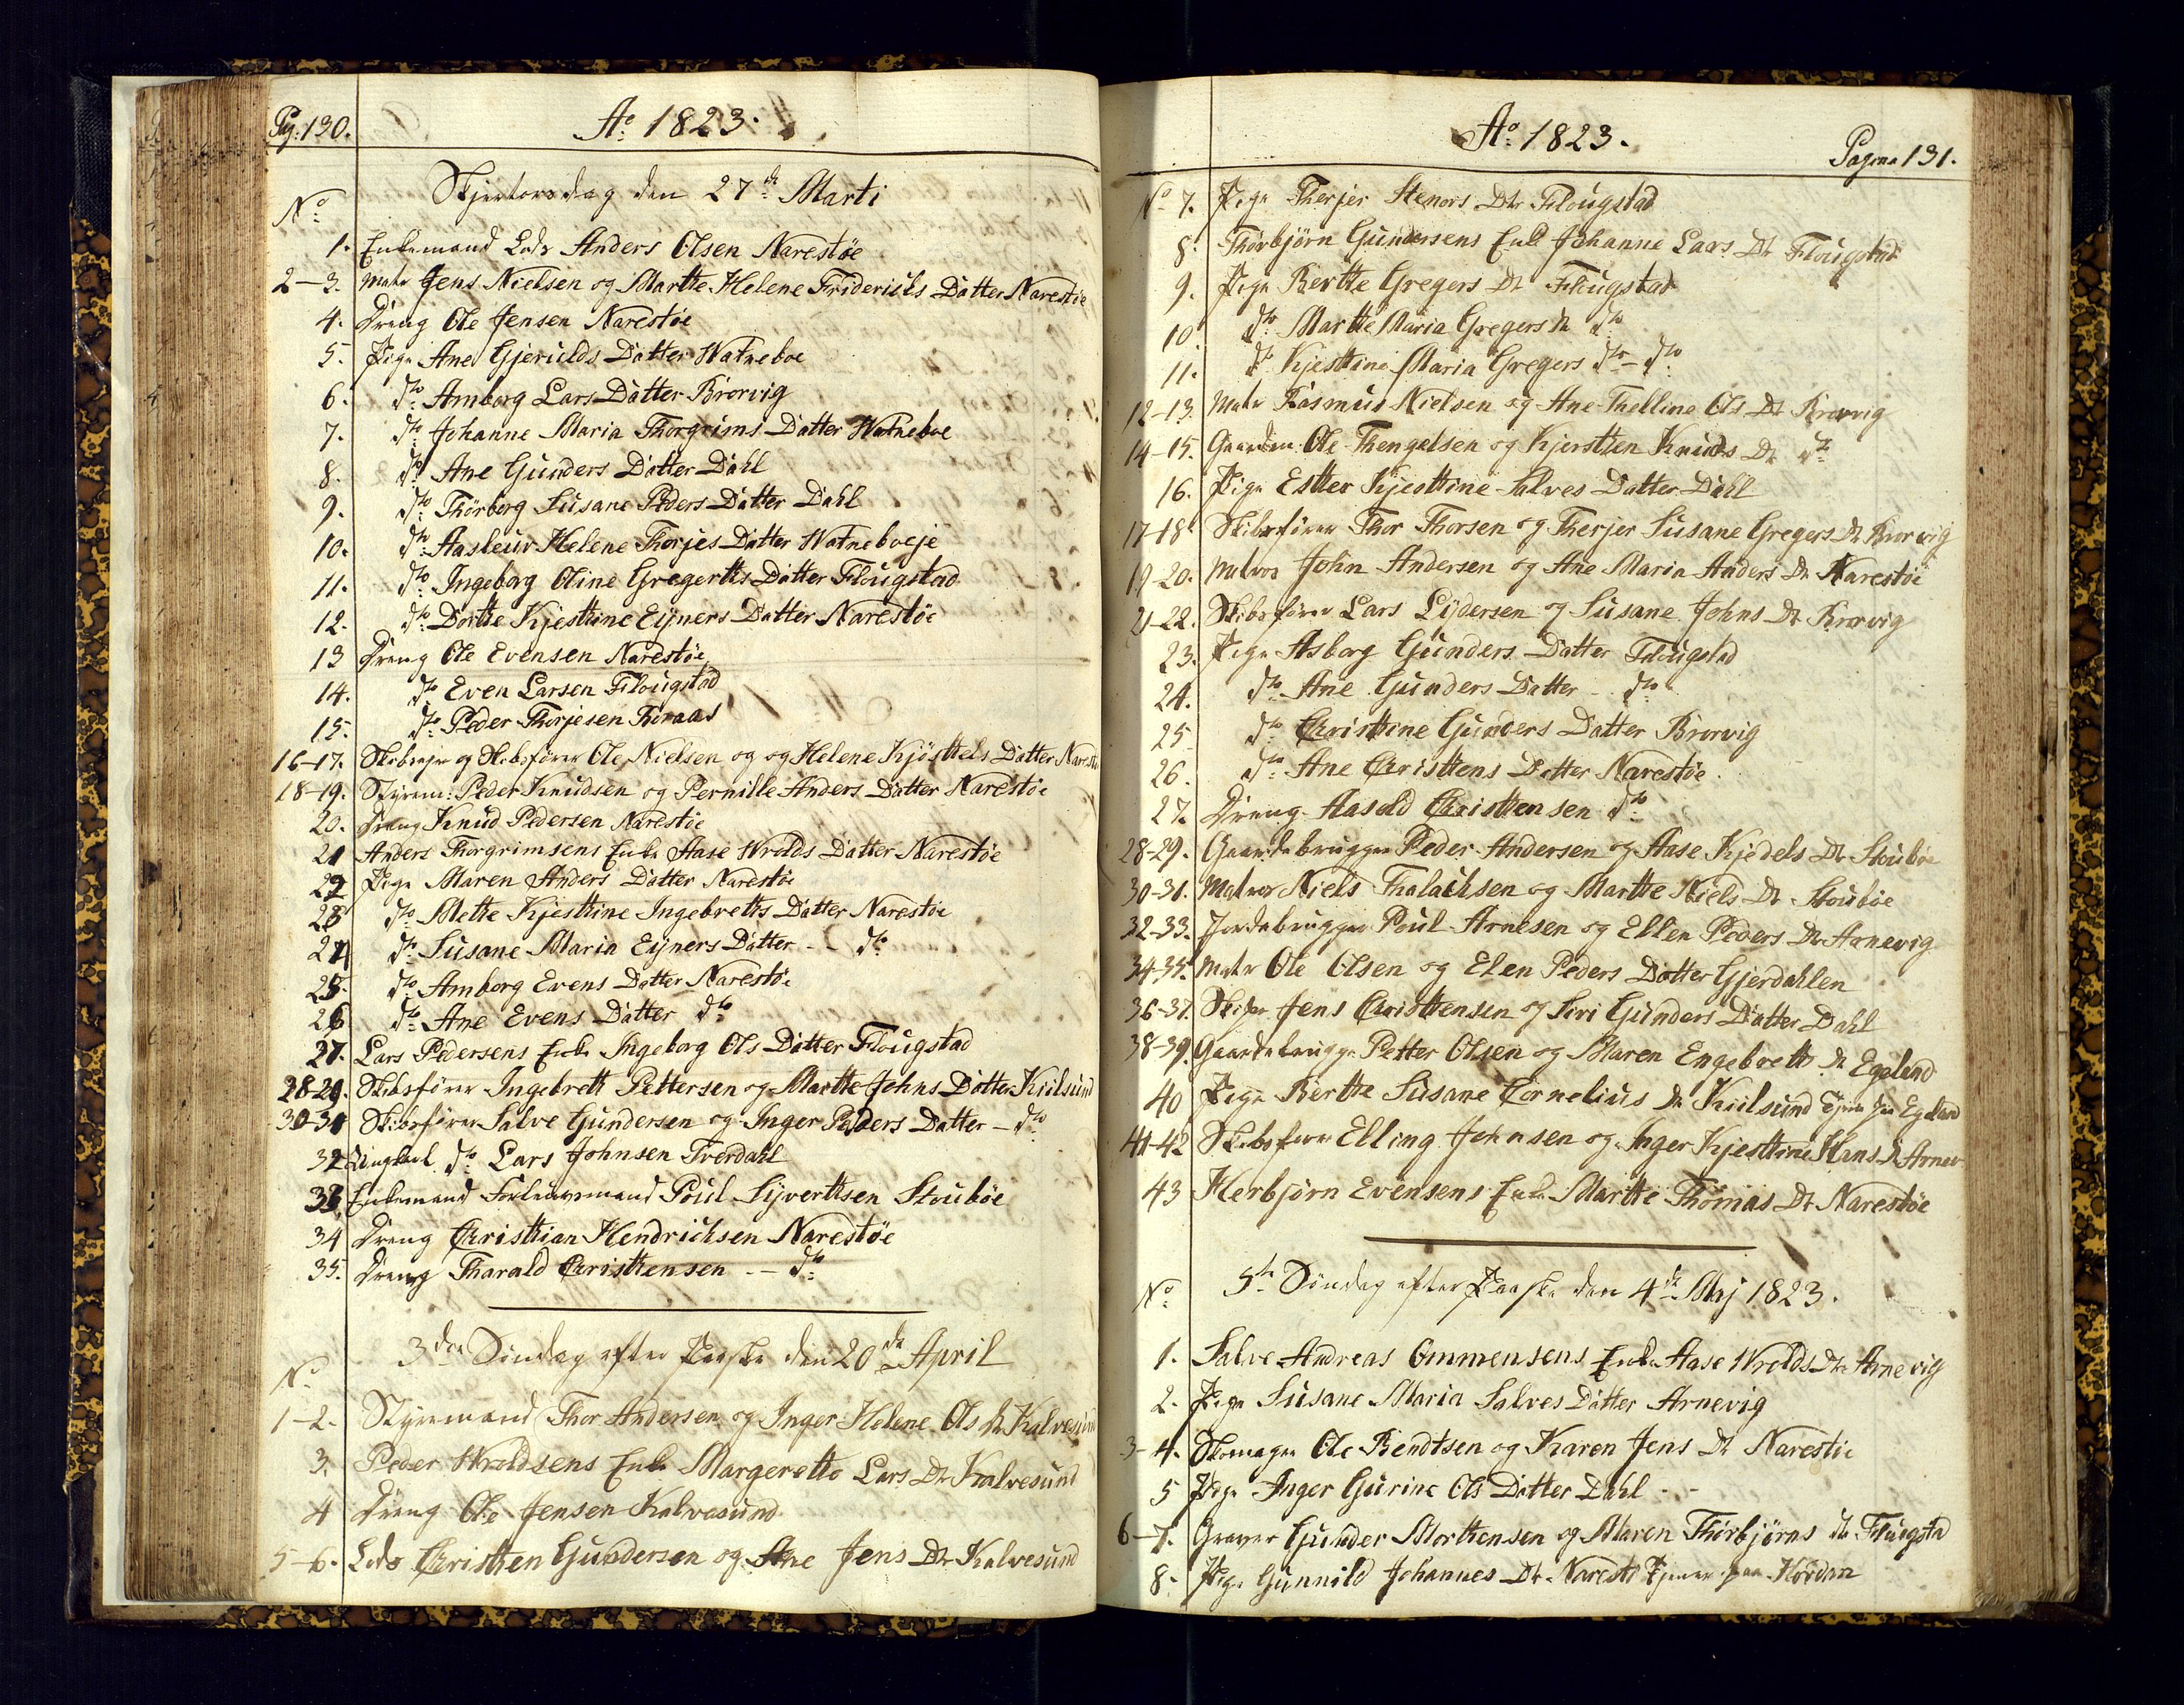 Pag: 130.
Ao 1823.
Skjertorsdag den 27de Marti
No
1. Enkemand Lods Anders Olsen Narestøe
2-3. Matr Jens Nielsen og Marthe Helene Friderichs Datter Narestøe
4. Dreng Ole Jensen Narestøe
5. Pige Ane Gjerulds Datter Watneboe
6. dto Amborg Lars Datter Brorvig
7. dto Johanne Maria Thorgrims Datter Watneboe
8. dto Ane Gunders Datter Dahl
9. dto Thørborg Susane Peders Datter Dahl
10. dto Aasleur Helene Thorjes Datter Watneboeje
11. dto Ingeborg Oline Gregertts Datter Flougstad
12. dto Dortte Kjesttine Eijners Datter Narestøe
13 Dreng Ole Evensen Narestøe
14. dto Even Larsen Flougstad
15. dto Peder Thorjesen Boraas
16-17. Skibsejer og Skibsfører Ole Nielsen og og Helene Kjøsttels Datter
18-19. Styrem: Peder Knudsen og Pernille Anders Datter Narestøe
20. Dreng Knud Pedersen Narestøe
21 Anders Thorgrimsens Enke Aase Wrolds Datter Narestøe
22 Pige Maren Anders Datter Narestøe
23 dto Mette Kjesttine Ingebretts Datter Narestøe
24 dto Susane Maria Eijners Datter - - dto
25. dto Amborg Evens Datter Narestøe
26 dto Ane Evens Datter dto
27. Lars Pedersens Enke Ingeborg Ols Datter Flougstad
28-29. Skibsfører Ingebrett Pettersen og Martte Johns Datter Kiilsund
30-31 Skibsfører Salve Gundersen og Inger Peders Datter - dto
32 Ungkarl dto Lars Johnsen Tverdahl
33 Enkemand Forlenesmand Poul Sijverttsen Stoubøe
34 Dreng Christtian Hendrichsen Narestøe
35. Dreng Tharald Christtensen - - dto
3die Søndag efter Paaske den 20de April
No
1-2. Styremand Thor Andersen og Inger Helene Ols Dr Kalvesund
3. Peder Wroldsens Enke Margerette Lars Dr Kalvesund
4 Dreng Ole Jensen Kalvesund
5-6. Lods Christten Gundersen og Ane Jens Dr Kalvesund
Ao 1823.
Pagina 131.
No 7. Pige Therjer Stenors Dtr Flougstad
8. Thørbjørn Gundersens Enke Johanne Lars Dr Flougstad
9. Pige Bertte Gregers Dr Flougstad
10. dto Martte Maria Gregers dr dto
11. dto Kjesttine Maria Gregers dr - dto
12-13 Matr Rasmus Nielsen og Ane Thelline Ols Dr Brorvig
14-15. Gaardm: Ole Thengelsen og Kjerstten Knuds Dr dto
16. Pige Estter Kjesttine Salves Datter Dahl
17-18 Skibsfører Thor Thorsen og Therjer Susane Gregers Dr Brorvig
19-20. Matros John Andersen og Ane Maria Anders Dr Narestøe
21-22. Skibsfører Lars Lydersen og Susane Johns Dr Brorvig
23. Pige Asborg Gunders Datter Flougstad
24. dto Ane Gunders Datter - dto
25 dto Christtine Gunders Datter Brorvig
26. dto Ane Christtens Datter Narestøe
27. Dreng Aasold Christtensen dto
28-29. Gaardebrugger Peder Andersen og Aase Kjedels Dr Stoubøe
30-31. Matros Niels Thalachsen og Martte Niels Dr Stoubøe
32-33. Jordebrugger Poul Arnesen og Ellen Peders Dr Arnevig
34-35. Matr Ole Olsen og Elen Peders Datter Gjerdahlen
36-37. Skifør Jens Christtensen og Siri Gunders Datter Dahl
38-39. Gaardebrugger Petter Olsen og Maren Engebretts Dr Egeland
40 Pige Bertte Susane Cornelius Dr Kiilsund tjener paa Egeland
41-42 Skibsfører Elling Johnsen og Inger Kjesttine Hans Dr Arnev
43 Herbjørn Evensens Enke Martte Thomas Dr Narestøe
5te Søndag efter Paaske den 4de Maj 1823.
No
1. Salve Andreas Ommensens Enke Aase Wrolds Dr Arnevig
2. Pige Susane Maria Salves Datter Arnevig
3-4. Skomager Ole Bendtsen og Karen Jens Dr Narestøe
5 Pige Inger Gurine Ols Datter Dahl - -
6-7. Graver Gunder Morttensen og Maren Thørbjørns dr Flougsta
8. Pige Gunnild Johannes Dr Narestø tjener paa Hørdan